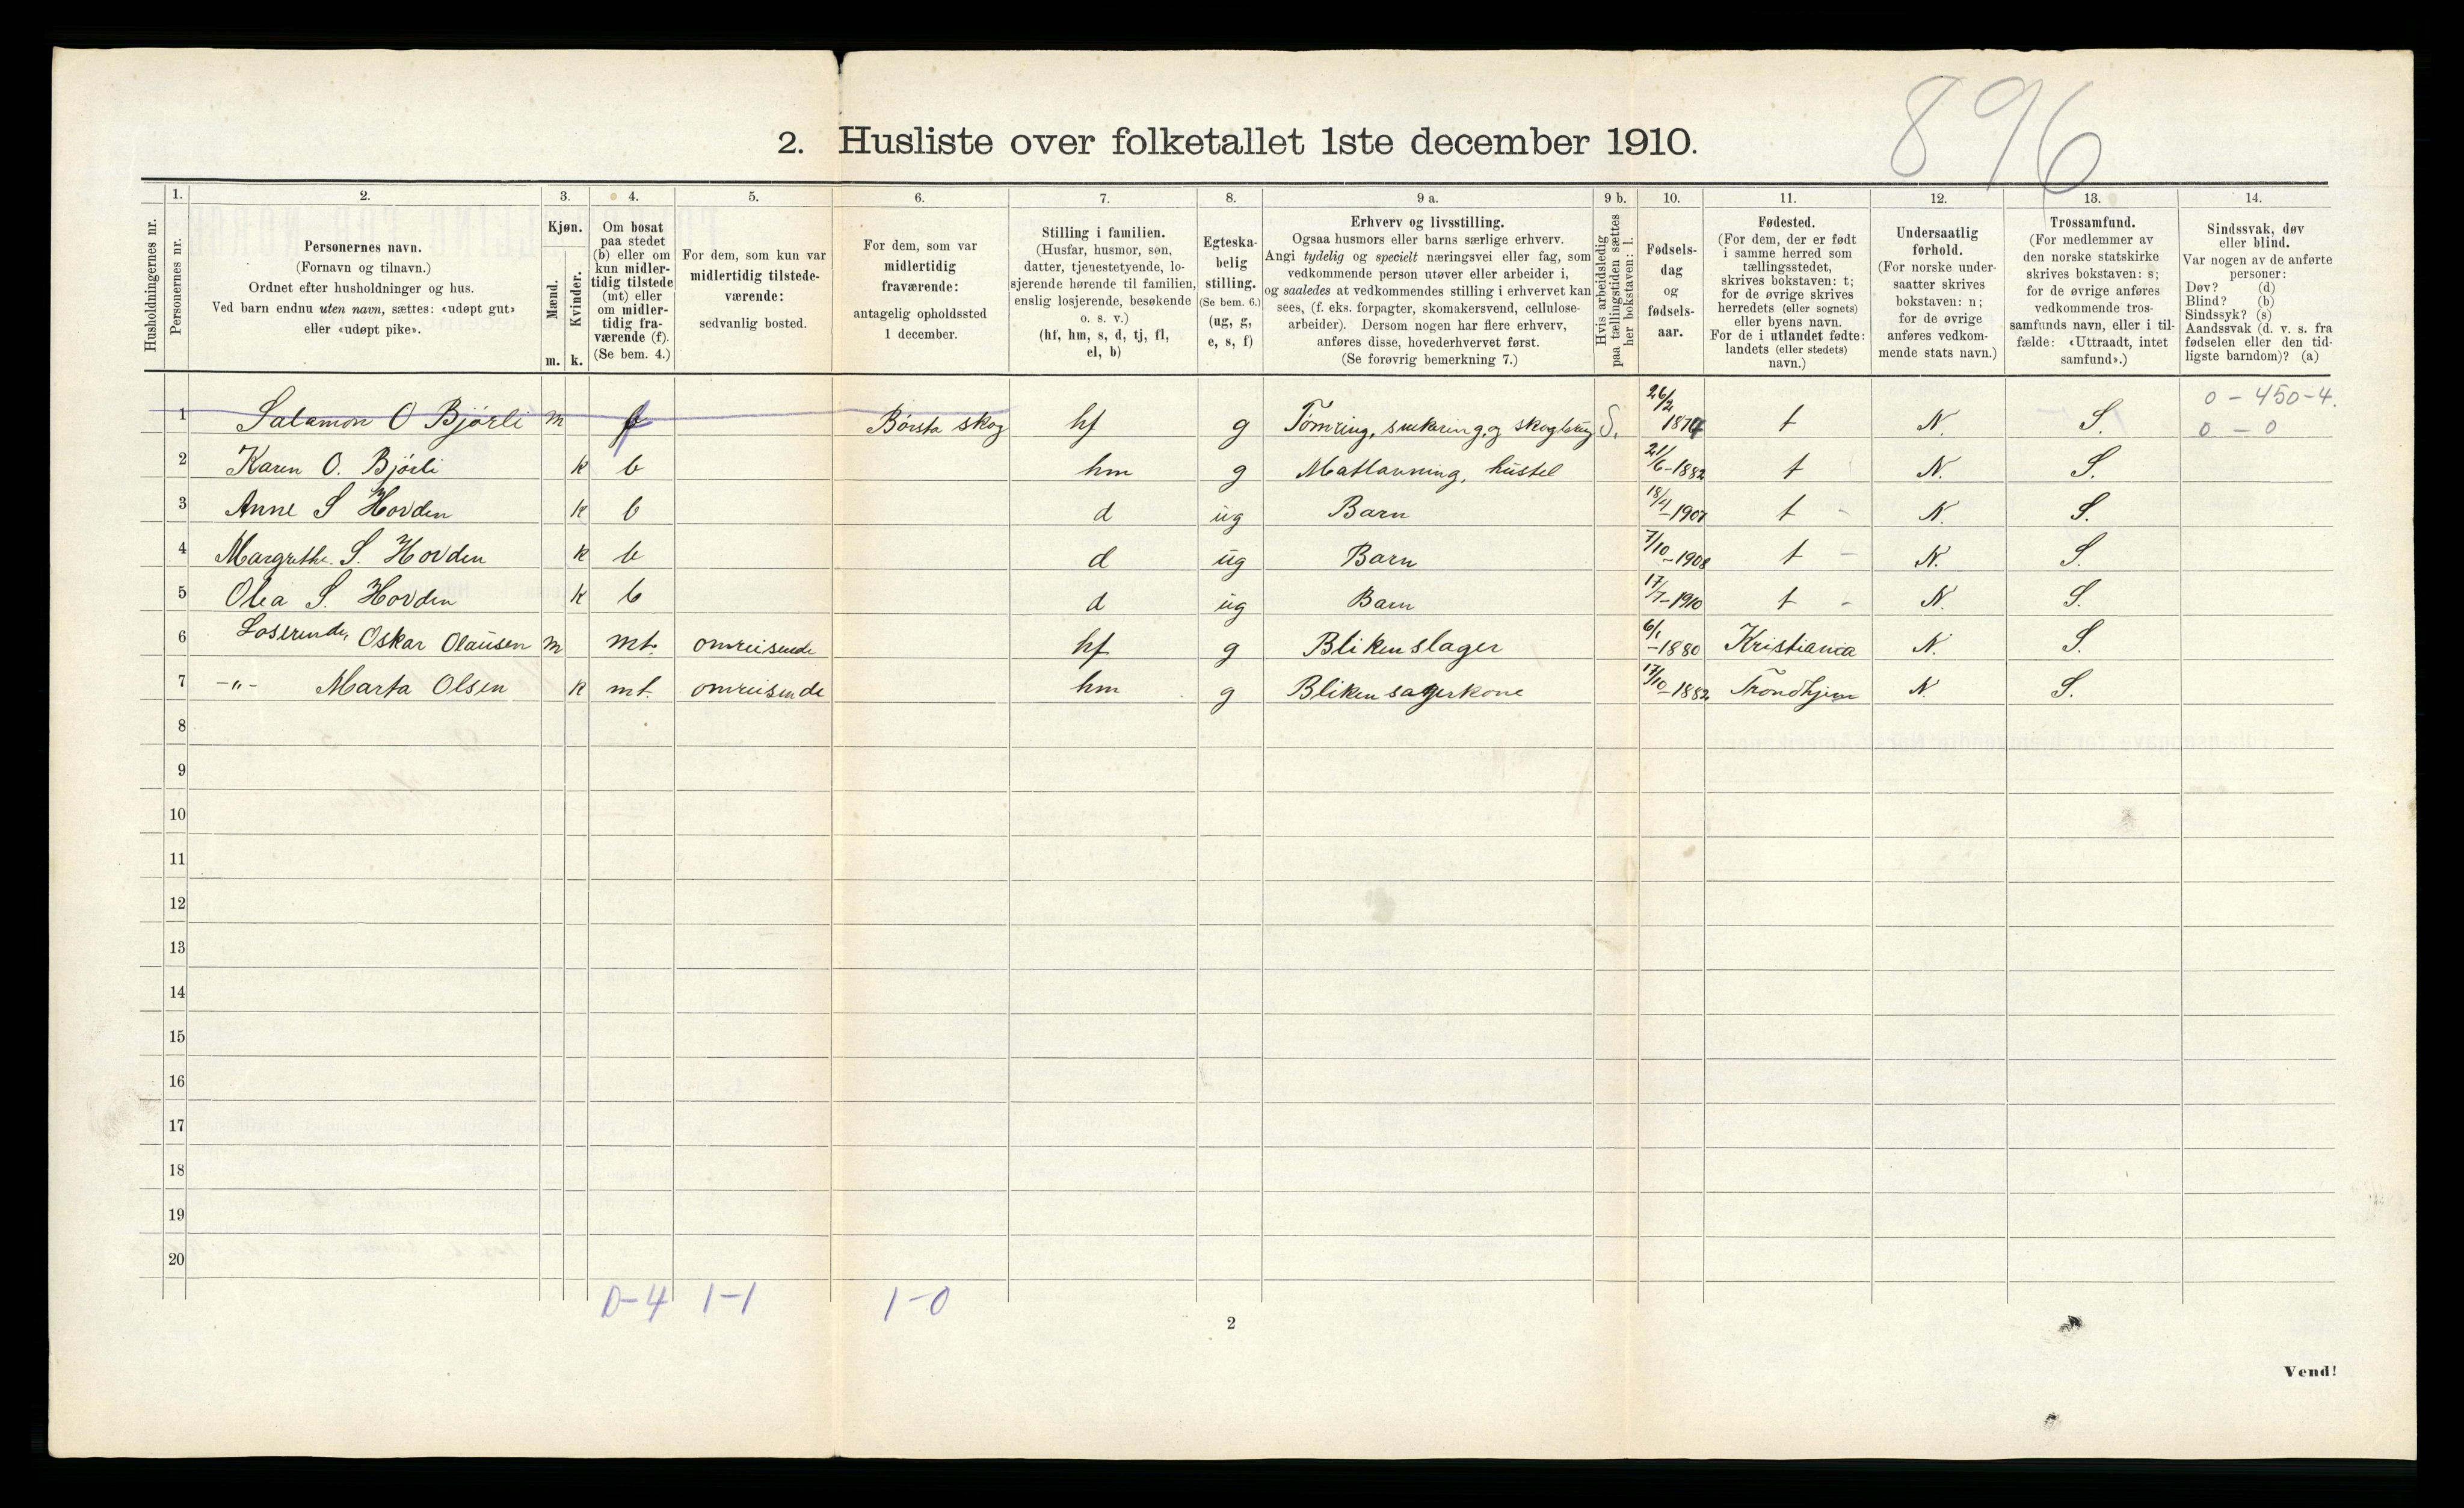 896
2. Husliste over folketallet 1ste december 1910.
Husholdningernes nr.
1.
Personernes nr.
2.
Personernes navn.
(Fornavn og tilnavn.)
Ordnet efter husholdninger og hus.
Ved barn endnu uten navn, sættes: «udøpt gut»
eller «udøpt pike».
3.
Kjøn.
Mænd.
Kvinder.
m. k.
4.
Om bosat
paa stedet
(b) eller om
kun midler-
tidig tilstede
(mt) eller
om midler-
tidig fra-
værende (f).
(Se bem. 4.)
5.
For dem, som kun var
midlertidig tilstede-
værende:
sedvanlig bosted.
6.
For dem, som var
midlertidig
fraværende:
antagelig opholdssted
1 december.
7.
Stilling i familien.
(Husfar, husmor, søn,
datter, tjenestetyende, lo-
sjerende hørende til familien,
enslig losjerende, besøkende
o. s. v.)
(hf, hm, s, d, tj, fl,
el, b)
8.
Egteska-
belig
stilling.
(Se bem. 6.)
(ug, g,
e, s, f)
9 a.
Erhverv og livsstilling.
Ogsaa husmors eller barns særlige erhverv.
Angi tydelig og specielt næringsvei eller fag, som
vedkommende person utøver eller arbeider i,
og saaledes at vedkommendes stilling i erhvervet kan
sees, (f. eks. forpagter, skomakersvend, cellulose-
arbeider). Dersom nogen har flere erhverv,
anføres disse, hovederhvervet først.
(Se forøvrig bemerkning 7.)
9 b.
Hvis arbeidsledig
paa tællingstiden sættes
her bokstaven: l.
10.
Fødsels-
dag
og
fødsels-
aar.
11.
Fødested.
(For dem, der er født
i samme herred som
tællingsstedet,
skrives bokstaven: t;
for de øvrige skrives
herredets (eller sognets)
eller byens navn.
For de i utlandet fødte:
landets (eller stedets)
navn.)
12.
Undersaatlig
forhold.
(For norske under-
saatter skrives
bokstaven: n;
for de øvrige
anføres vedkom-
mende stats navn.)
13.
Trossamfund.
(For medlemmer av
den norske statskirke
skrives bokstaven: s;
for de øvrige anføres
vedkommende tros-
samfunds navn, eller i til-
fælde: «Uttraadt, intet
samfund».)
14.
Sindssvak, døv
eller blind.
Var nogen av de anførte
personer:
Døv? (d)
Blind? (b)
Sindssyk? (s)
Aandssvak (d. v. s. fra
fødselen eller den tid-
ligste barndom)? (a)
0 - 450 - 4.
1 Salamon O Bjørli m f Børsta skog hf g Tømring, snekring, og skogbrug S. 26/2 1874 t N. S. 0 - 0
2 Karen O. Bjørli k b hm g Matlavning, hustel 21/6-1882 t N. S.
3 Anne S Hovden k b d ug Barn 18/4-1907 t - N. S.
4 Margrethe S. Hovden k b d ug Barn 7/10-1908 t - N. S.
5 Olea S. Hovden k b d ug Barn 17/7-1910 t - N. S.
6 Loserende, Oskar Olausen m mt. omreisende hf g Blikenslager 6/1-1880 Kristiania N. S.
7 -"- Marta Olsen k mt. omreisende hm g Blikensagerkone 17/10-1882 Trondhjem N. S.
8
9
10
11
12
13
14
15
16
17
18
19
20
0-4 1-1 1-0
2
Vend!